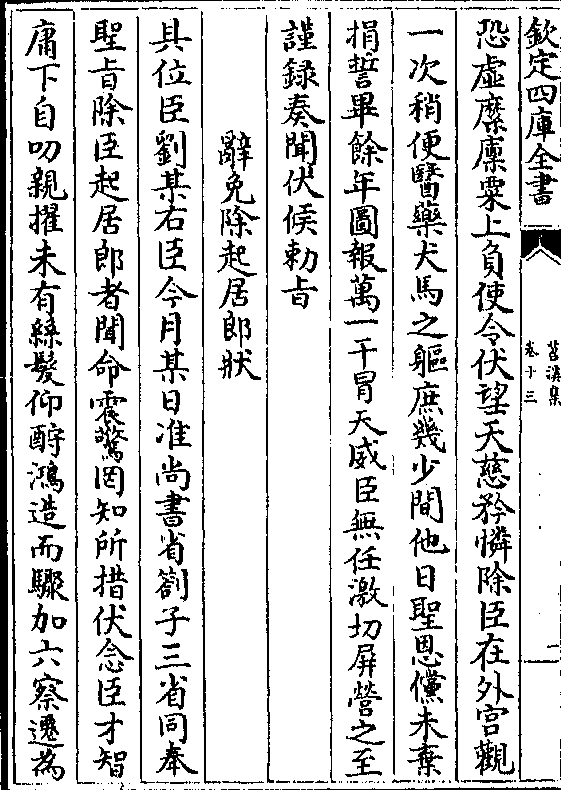 欽定四庫全書
苕溪集
卷十三
二
恐虛縻廪粟上負使令伏望天慈矜憐除臣在外宫觀
一次稍便醫藥犬馬之軀庶幾少間他日聖恩儻未棄
捐誓畢餘年圖報萬一干冒天威臣無任激切屏營之至
謹録奏聞伏候勅㫖
辭免除起居郎狀
具位臣劉某右臣今月某日准尚書省劄子三省同奉
聖㫖除臣起居郎者聞命震驚罔知所措伏念臣才智
庸下自叨親擢未有絲髮仰酧鴻造而驟加六察遷為